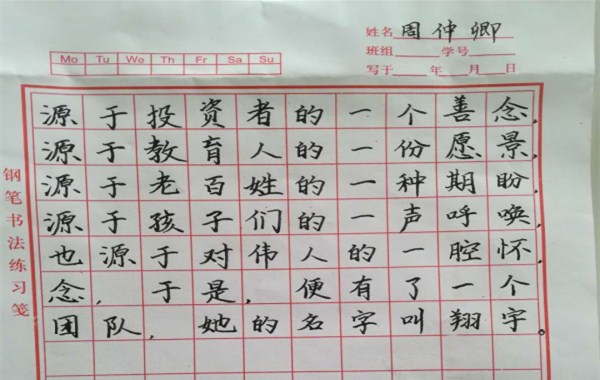 姓名 周仲卿
班组 学号
写于 年 月 日
Mo Tu We Th Fr Sa Su
钢笔书法练习笺
源于投资者的一个善念,
源于教育人的一份愿景,
源于老百姓的一种期盼,
源于孩子们的一声呼唤,
也源于对伟人的一腔怀
念, 于是, 便有了一个
团队, 她的名字叫翔宇。